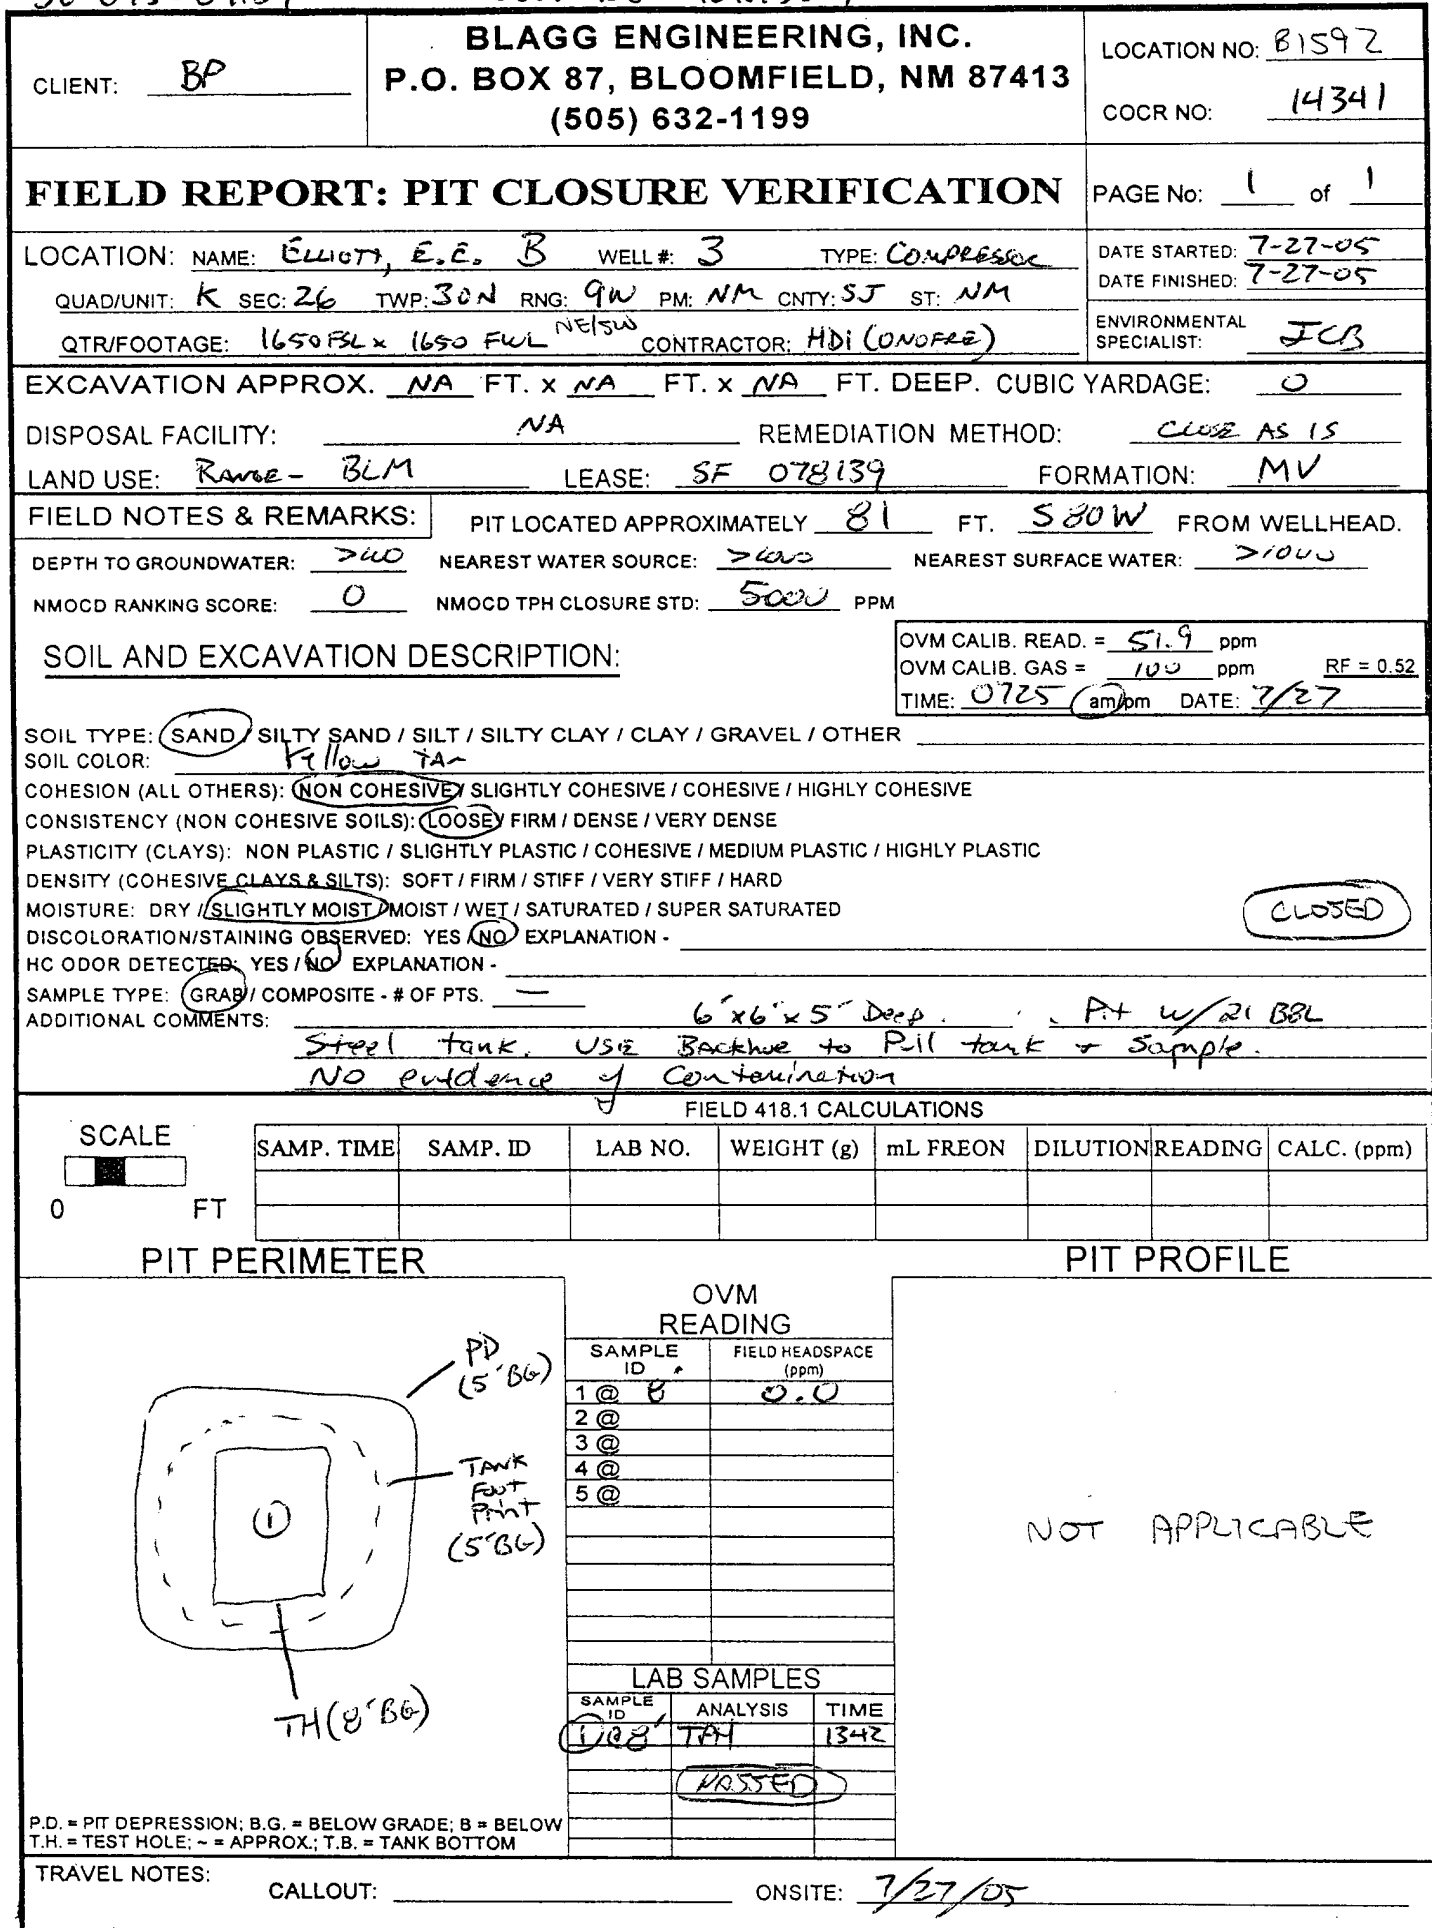 BLAGG ENGINEERING, INC.
P.O. BOX 87, BLOOMFIELD, NM 87413
(505) 632-1199
CLIENT: BP
LOCATION NO: B1592
COCR NO: 14341
FIELD REPORT: PIT CLOSURE VERIFICATION
PAGE No: 1 of 1
LOCATION: NAME: ELLIOTT, E.E. B WELL #: 3 TYPE: COMPRESSOR
QUAD/UNIT: K SEC: 26 TWP: 30N RNG: 9W PM: NM CNTY: SJ ST: NM
QTR/FOOTAGE: 1650 FSL x 1650 FWL NE/SW CONTRACTOR: HDI (ONOFRE)
DATE STARTED: 7-27-05
DATE FINISHED: 7-27-05
ENVIRONMENTAL SPECIALIST: JCB
EXCAVATION APPROX. NA FT. x NA FT. x NA FT. DEEP. CUBIC YARDAGE: 0
DISPOSAL FACILITY: NA REMEDIATION METHOD: CLOSE AS IS
LAND USE: RANGE - BLM LEASE: SF 078139 FORMATION: MV
FIELD NOTES & REMARKS: PIT LOCATED APPROXIMATELY 81 FT. S80W FROM WELLHEAD.
DEPTH TO GROUNDWATER: NEAREST WATER SOURCE: >1000 NEAREST SURFACE WATER: >1000
NMOCD RANKING SCORE: 0 NMOCD TPH CLOSURE STD: 5000 PPM
SOIL AND EXCAVATION DESCRIPTION:
OVM CALIB. READ. = 51.9 ppm
OVM CALIB. GAS = 100 ppm RF = 0.52
TIME: 0725 am/pm DATE: 7/27
SOIL TYPE: SAND / SILTY SAND / SILT / SILTY CLAY / CLAY / GRAVEL / OTHER
SOIL COLOR: Yellow TAN
COHESION (ALL OTHERS): NON COHESIVE / SLIGHTLY COHESIVE / COHESIVE / HIGHLY COHESIVE
CONSISTENCY (NON COHESIVE SOILS): LOOSE / FIRM / DENSE / VERY DENSE
PLASTICITY (CLAYS): NON PLASTIC / SLIGHTLY PLASTIC / COHESIVE / MEDIUM PLASTIC / HIGHLY PLASTIC
DENSITY (COHESIVE CLAYS & SILTS): SOFT / FIRM / STIFF / VERY STIFF / HARD
MOISTURE: DRY / SLIGHTLY MOIST / MOIST / WET / SATURATED / SUPER SATURATED
CLOSED
DISCOLORATION/STAINING OBSERVED: YES / NO EXPLANATION -
HC ODOR DETECTED: YES / NO EXPLANATION -
SAMPLE TYPE: GRAB / COMPOSITE - # OF PTS. —
ADDITIONAL COMMENTS: 6'x6'x5' Deep. Pit w/21 BBL
Steel tank. USE Backhoe to Pull tank + Sample.
NO evidence of Contamination
FIELD 418.1 CALCULATIONS
SCALE
0 FT
SAMP. TIME SAMP. ID LAB NO. WEIGHT (g) mL FREON DILUTION READING CALC. (ppm)
PIT PERIMETER
PIT PROFILE
OVM
READING
SAMPLE ID FIELD HEADSPACE (ppm)
1 @ 8' 0.0
2 @
3 @
4 @
5 @
PD
(5'BG)
TANK
Foot
Print
(5'BG)
1
TH (8'BG)
NOT APPLICABLE
LAB SAMPLES
SAMPLE ID ANALYSIS TIME
1@8' TPH 1342
PASSED
P.D. = PIT DEPRESSION; B.G. = BELOW GRADE; B = BELOW
T.H. = TEST HOLE; ~ = APPROX.; T.B. = TANK BOTTOM
TRAVEL NOTES:
CALLOUT: ONSITE: 7/27/05